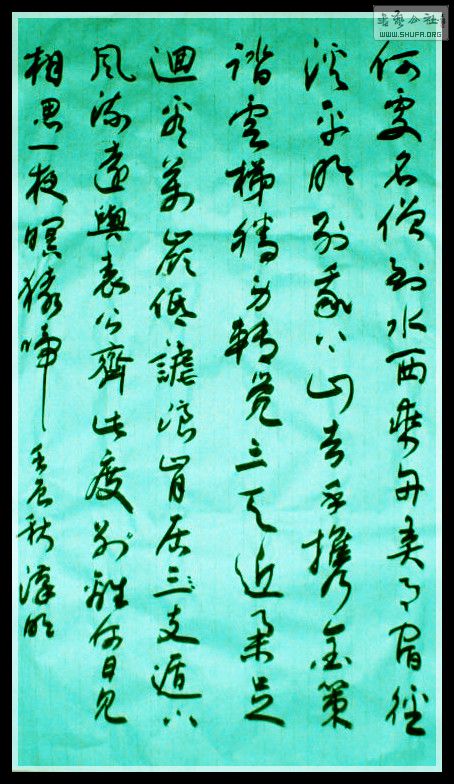 书艺公社
WWW.SHUFA.ORG
何處名僧到水西乘舟弄月宿徑
溪平明别我上山去手攜金策
踏雲梯騰身轉覺三天近舉足
迴看萬嶺低謔浪肯居三支遁下
風流還與袁公齊此度别離何日見
相思一夜暝猿啼 壬辰秋